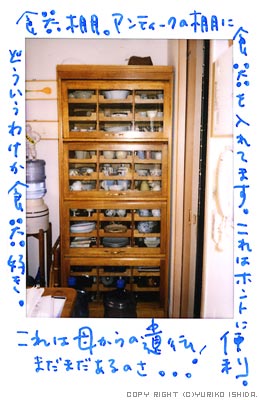 食器棚。アンティークの棚に
食器を入れてます。これはホントに便利。
どういうわけか食器好き。
これは母からの遺伝!
まだまだあるのさ...
COPY RIGHT (C)YURIKO ISHIDA.